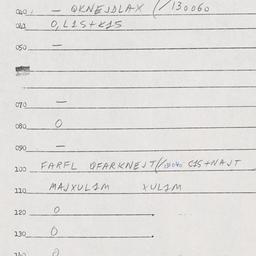 040. — QKNEJDLAX (/130060
041 0, L15+K15
050. —
070. —
080. 0
090. —
100 FARFL QFARKNEJT(/13060 C15+NAJT
110. MAJXUL1M XUL1M
120 0
130. 0
140 0